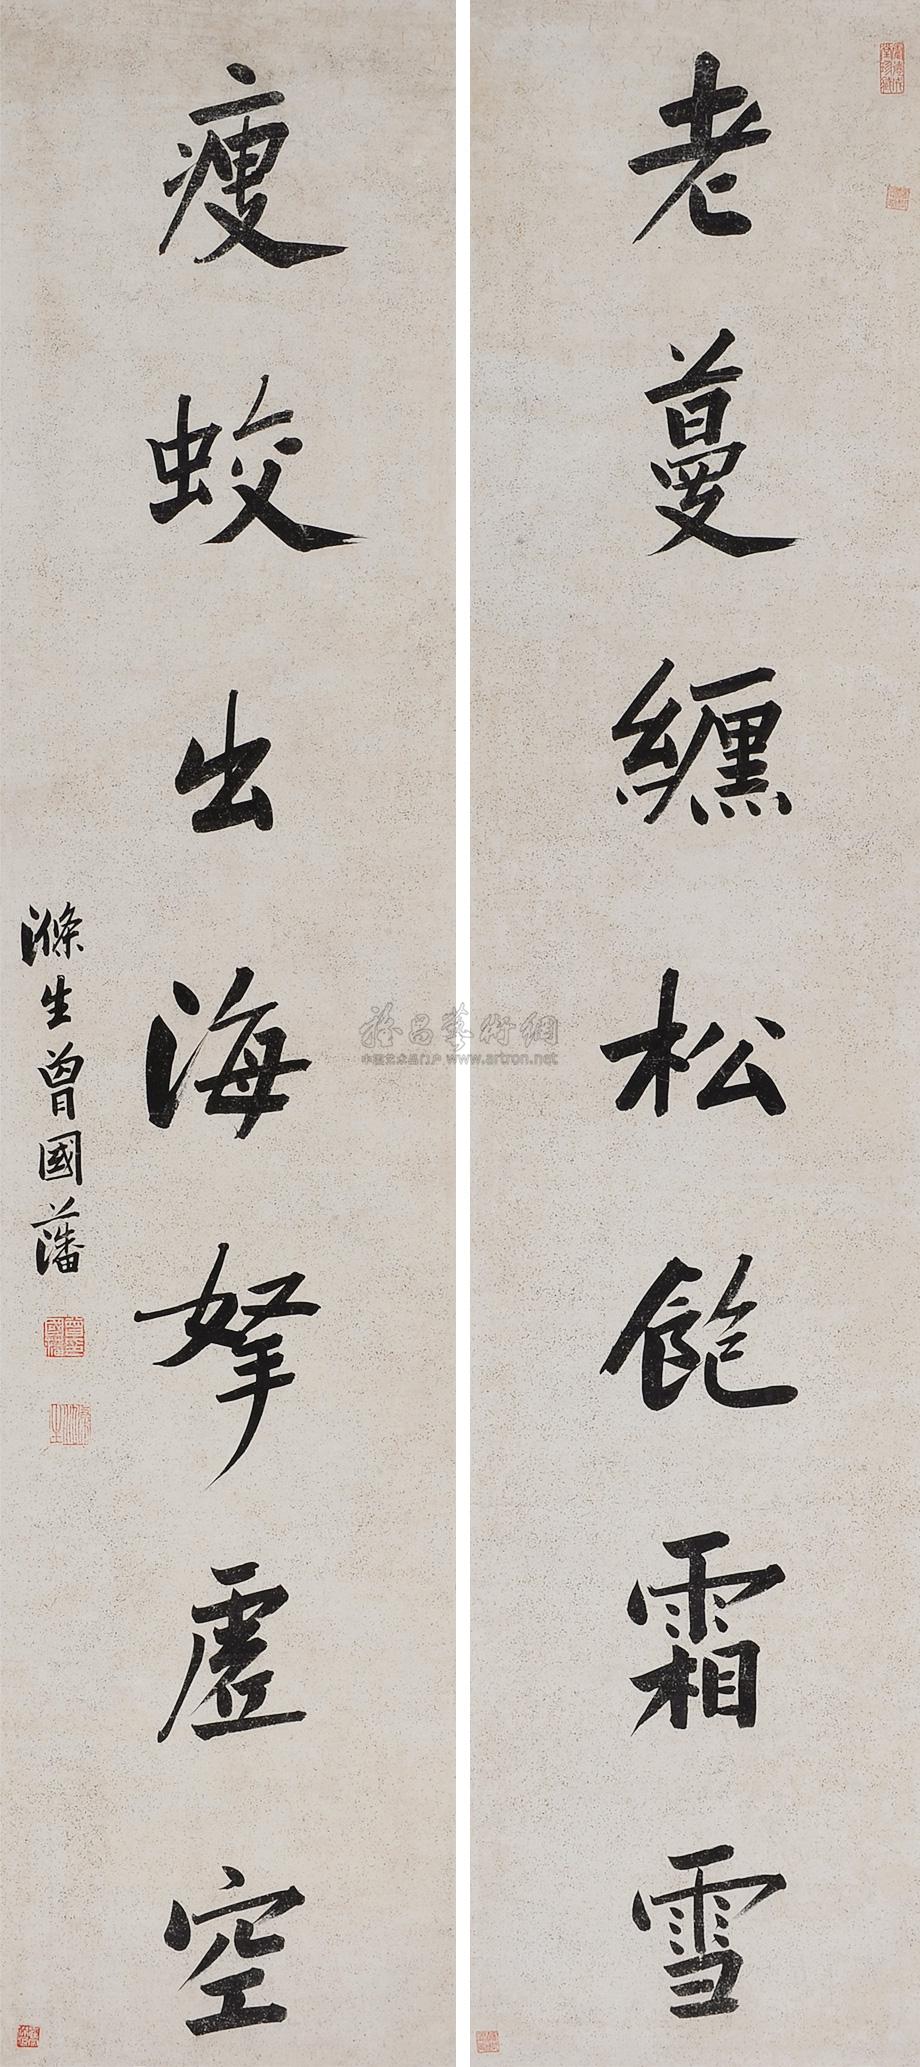 老蔓纏松飽霜雪
瘦蛟出海拏虛空
滌生曾國藩
雅昌藝術網
中国艺术品门户 www.artron.net